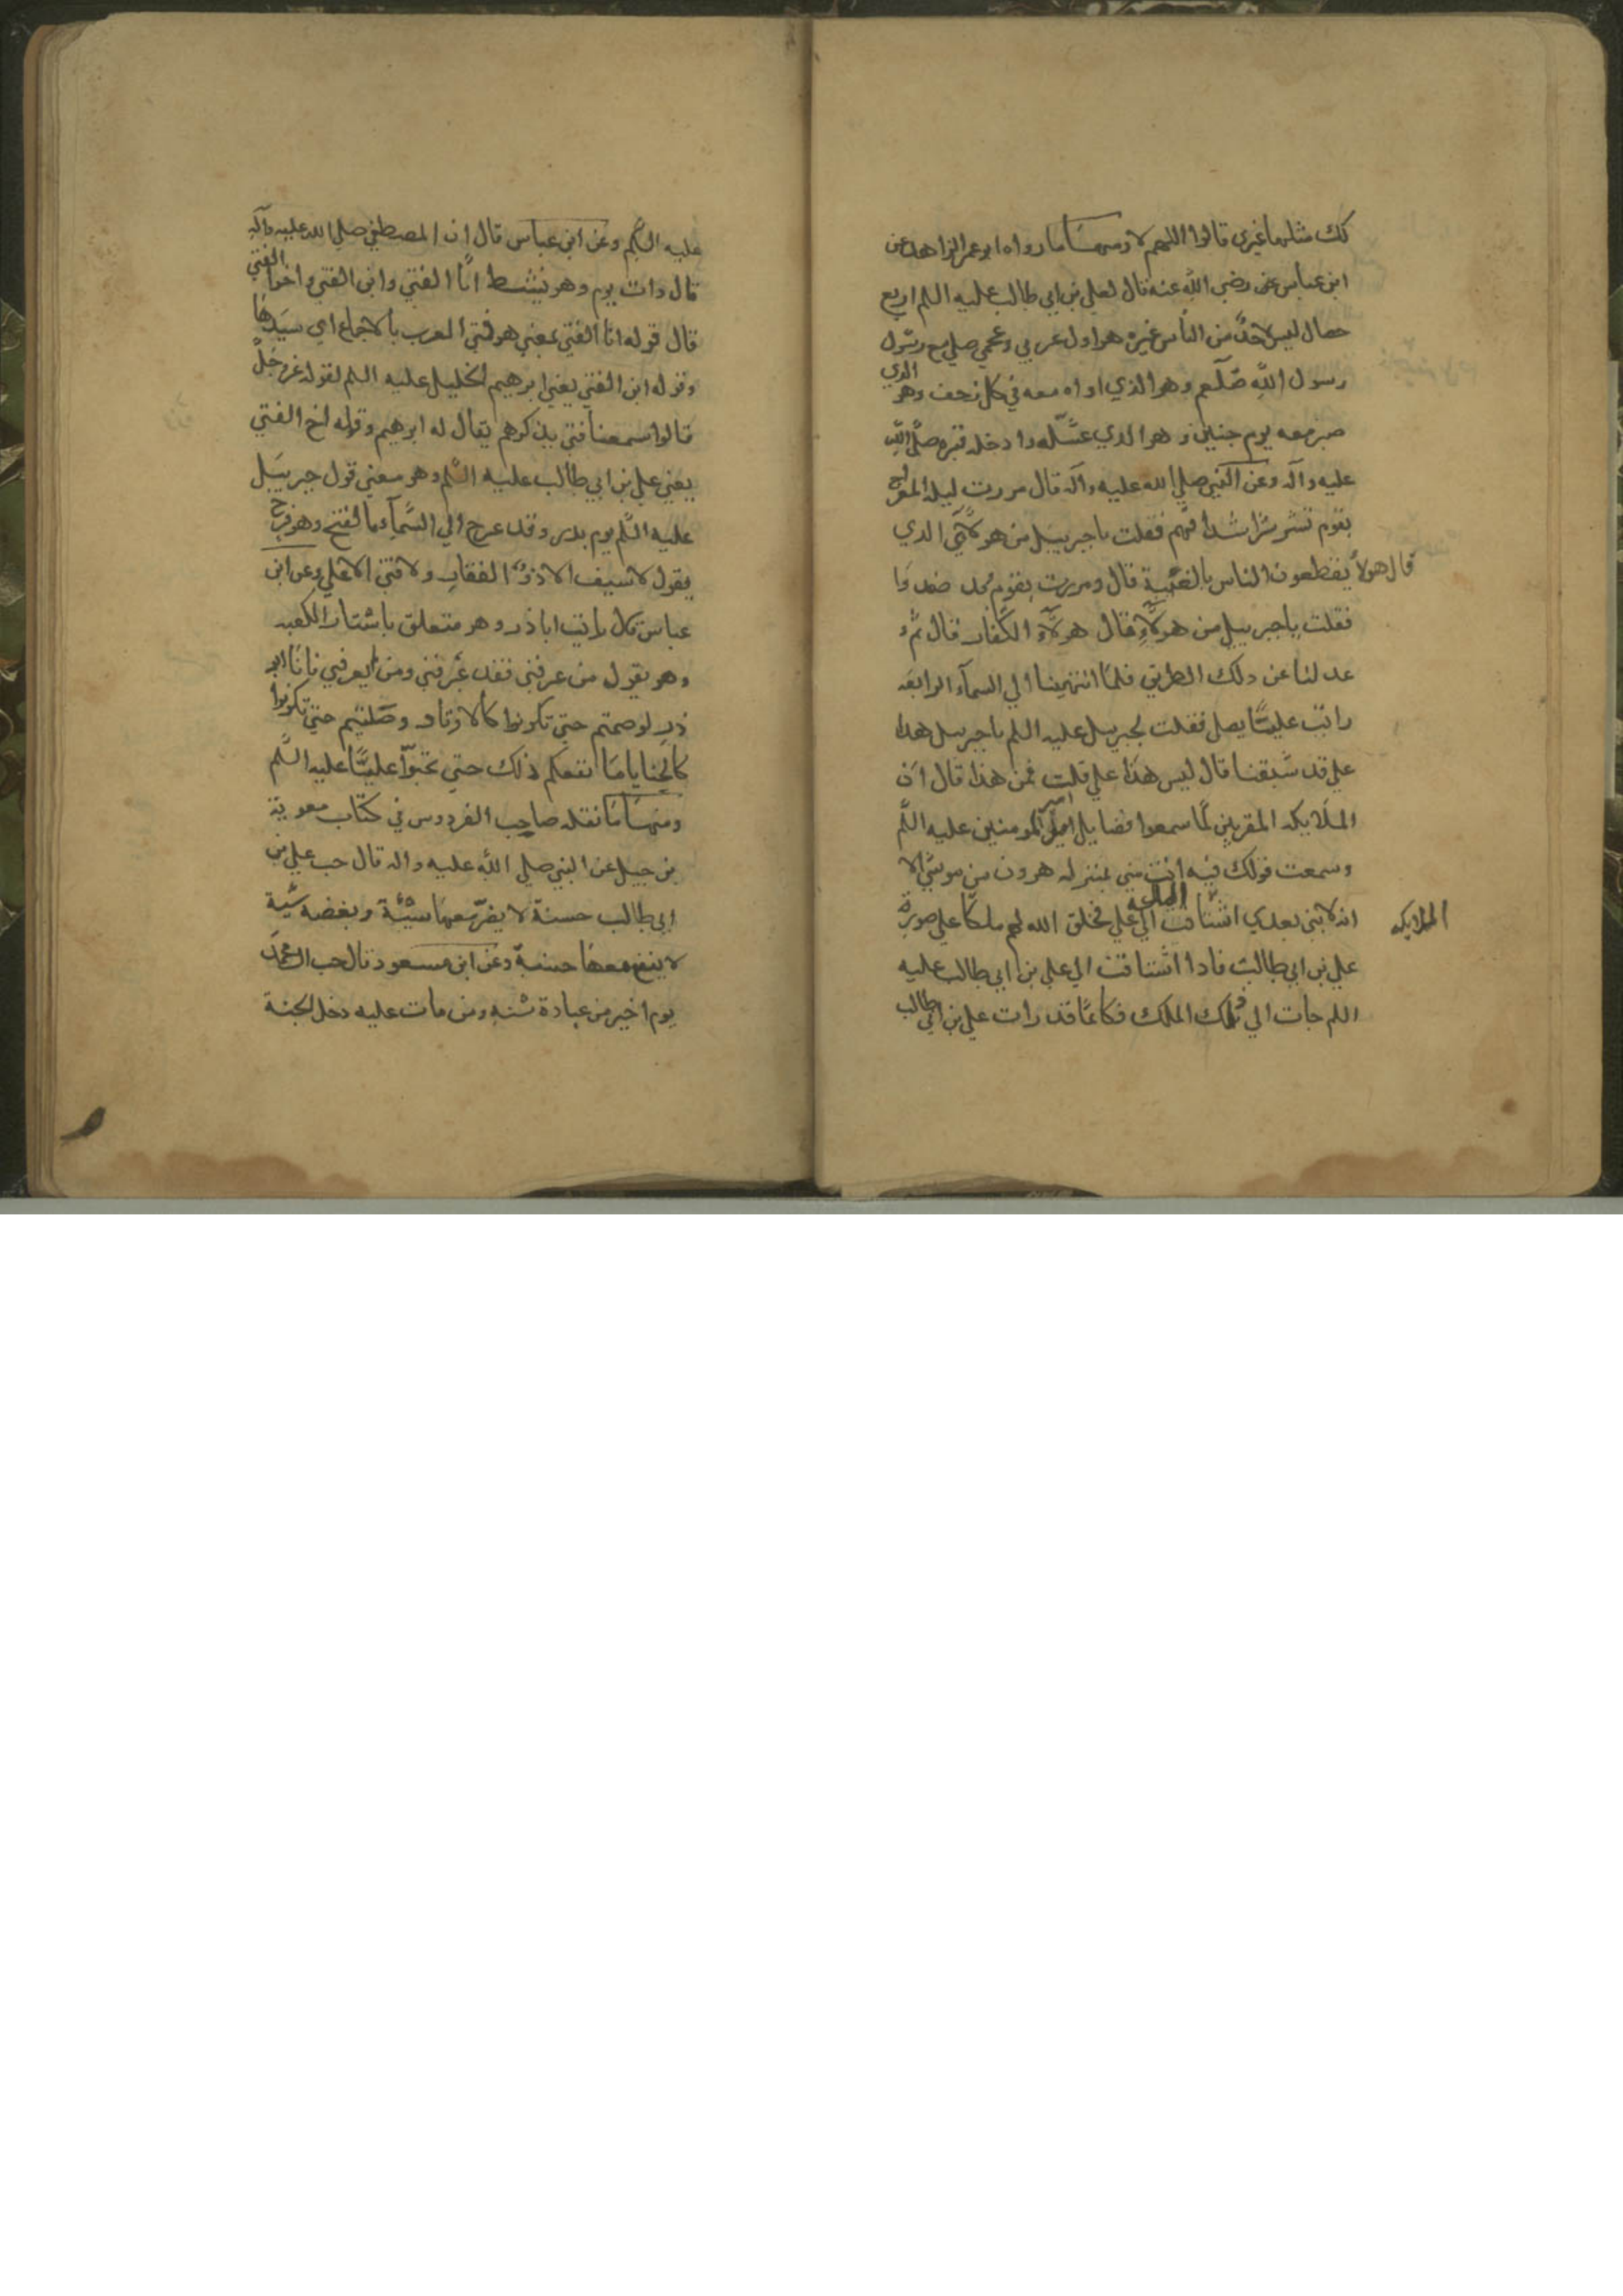 لك مثلها غيرى قالوا اللهم لا ومنها ما رواه ابو عمر الزاهد عن
ابن عباس رضي الله عنه قال لعلي بن ابي طالب عليه السلم اربع
خصال ليس لاحد من الناس غيره هو اول عربي وعجمي صلي مع رسول
رسول الله صلعم وهو الذي لواه معه في كل زحف وهو الذي
صبر معه يوم حنين وهو الذي غسّله وادخله قبره صلى الله
عليه وآله وعن النبي صلي الله عليه وآله قال مررت ليلة المعراج
بقوم تشرشر اشداقهم فقلت يا جبرييل من هولآئي الذي
قال هولآ يقطعون الناس بالغيبة قال ومررت بقوم وقد ضوضوا
فقلت يا جبرييل من هولآء قال هولآء الكفار قال ثم
عدلنا عن ذلك الطريق فلما انتهينا الي السمآء الرابعة
رايت عليّا يصلي فقلت لجبرييل عليه السلم يا جبرييل هذا
علي قد سبقنا قال ليس هذا علي قلت فمن هذا قال ان
الملايكه المقربين لما سمعوا فضايل امير المومنين عليه السلم
وسمعت قولك فيه انت مني بمنزله هرون من موسي الا
انه لا نبي بعدي اشتاقت الي علي فخلق الله لهم ملكا علي صورة
الملايكه
علي بن ابي طالب فاذا اشتاقت الي علي بن ابي طالب عليه
السلم جات الي ذلك الملك فكانما قد رات علي بن ابي طالب
عليه السلم وعن ابن عباس قال ان المصطفي صلي الله عليه وآله
قال ذات يوم وهو نشط انا الفتي وابن الفتي واخوا الفتي
قال قوله انا الفتي يعني هو فتي العرب بالاجماع اي سيدها
وقوله ابن الفتي يعني ابرهيم الخليل عليه السلم لقوله عز وجل
قالوا سمعنا فتي يذكرهم يقال له ابرهيم وقوله اخ الفتي
يعني علي بن ابي طالب عليه السلم وهو معني قول جبرييل
عليه السلم يوم بدر وقد عرج الي السمآء بالفتح وهو فرح
يقول لا سيف الا ذو الفقار ولا فتي الا علي وعن ابن
عباس قال رايت اباذر وهو متعلق باستار الكعبه
وهو يقول من عرفني فقد عرفني ومن لم يعرفني فانا ابو
ذر لو صمتم حتي تكونوا كالاوتار وصليتم حتي تكونوا
كالحنايا ما نفعكم ذلك حتي تحبوا عليا عليه السلم
ومنها ما نقله صاحب الفردوس في كتاب معوية
بن جبل عن النبي صلي الله عليه واله قال حب علي بن
ابي طالب حسنة لا يضر معها سيئة وبغضه سية
لا ينفع معها حسنة وعن ابن مسعود قال حب ال محمد
يوم اخير من عبادة سنه ومن مات عليه دخل الجنة